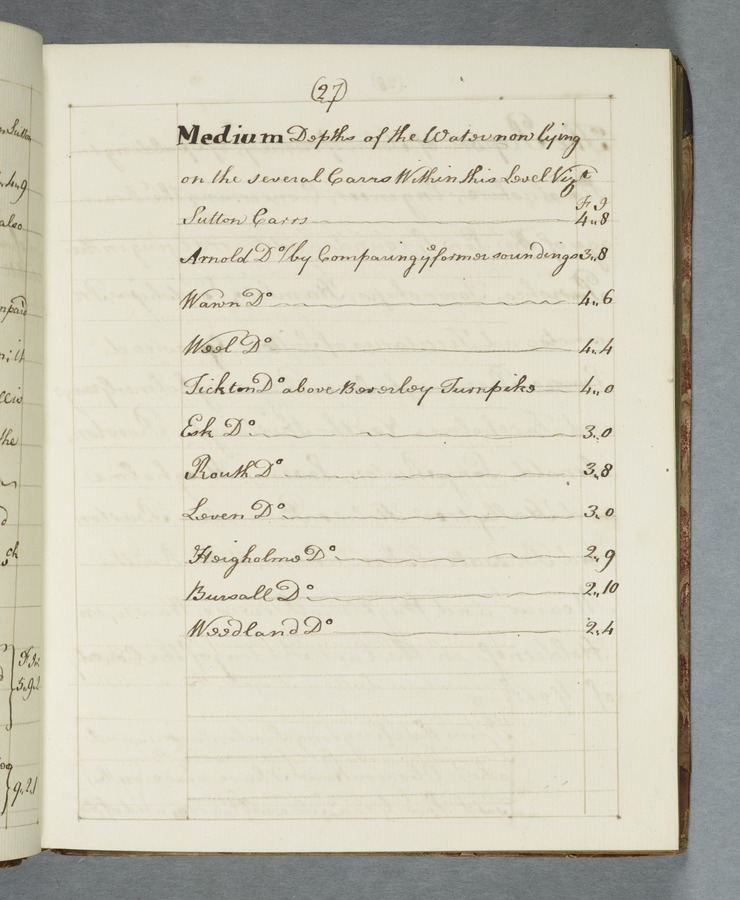 (27)
Medium Depths of the Water now lying
on the several Carrs Within this Level Vizt
F I
Sutton Carrs 4"8
Arnold Do/by Comparing ye former soundings 3"8
Wawn Do 4"6
Weel Do 4"4
Tickton Do above Beverley Turnpike 4"0
Esk Do 3"0
Routh Do 3"8
Leven Do 3"0
Heigholme Do 2"9
Bursall Do 2"10
Weedland Do 2"4
Sutton
4"9
also
the
5"9"2
9"2"1